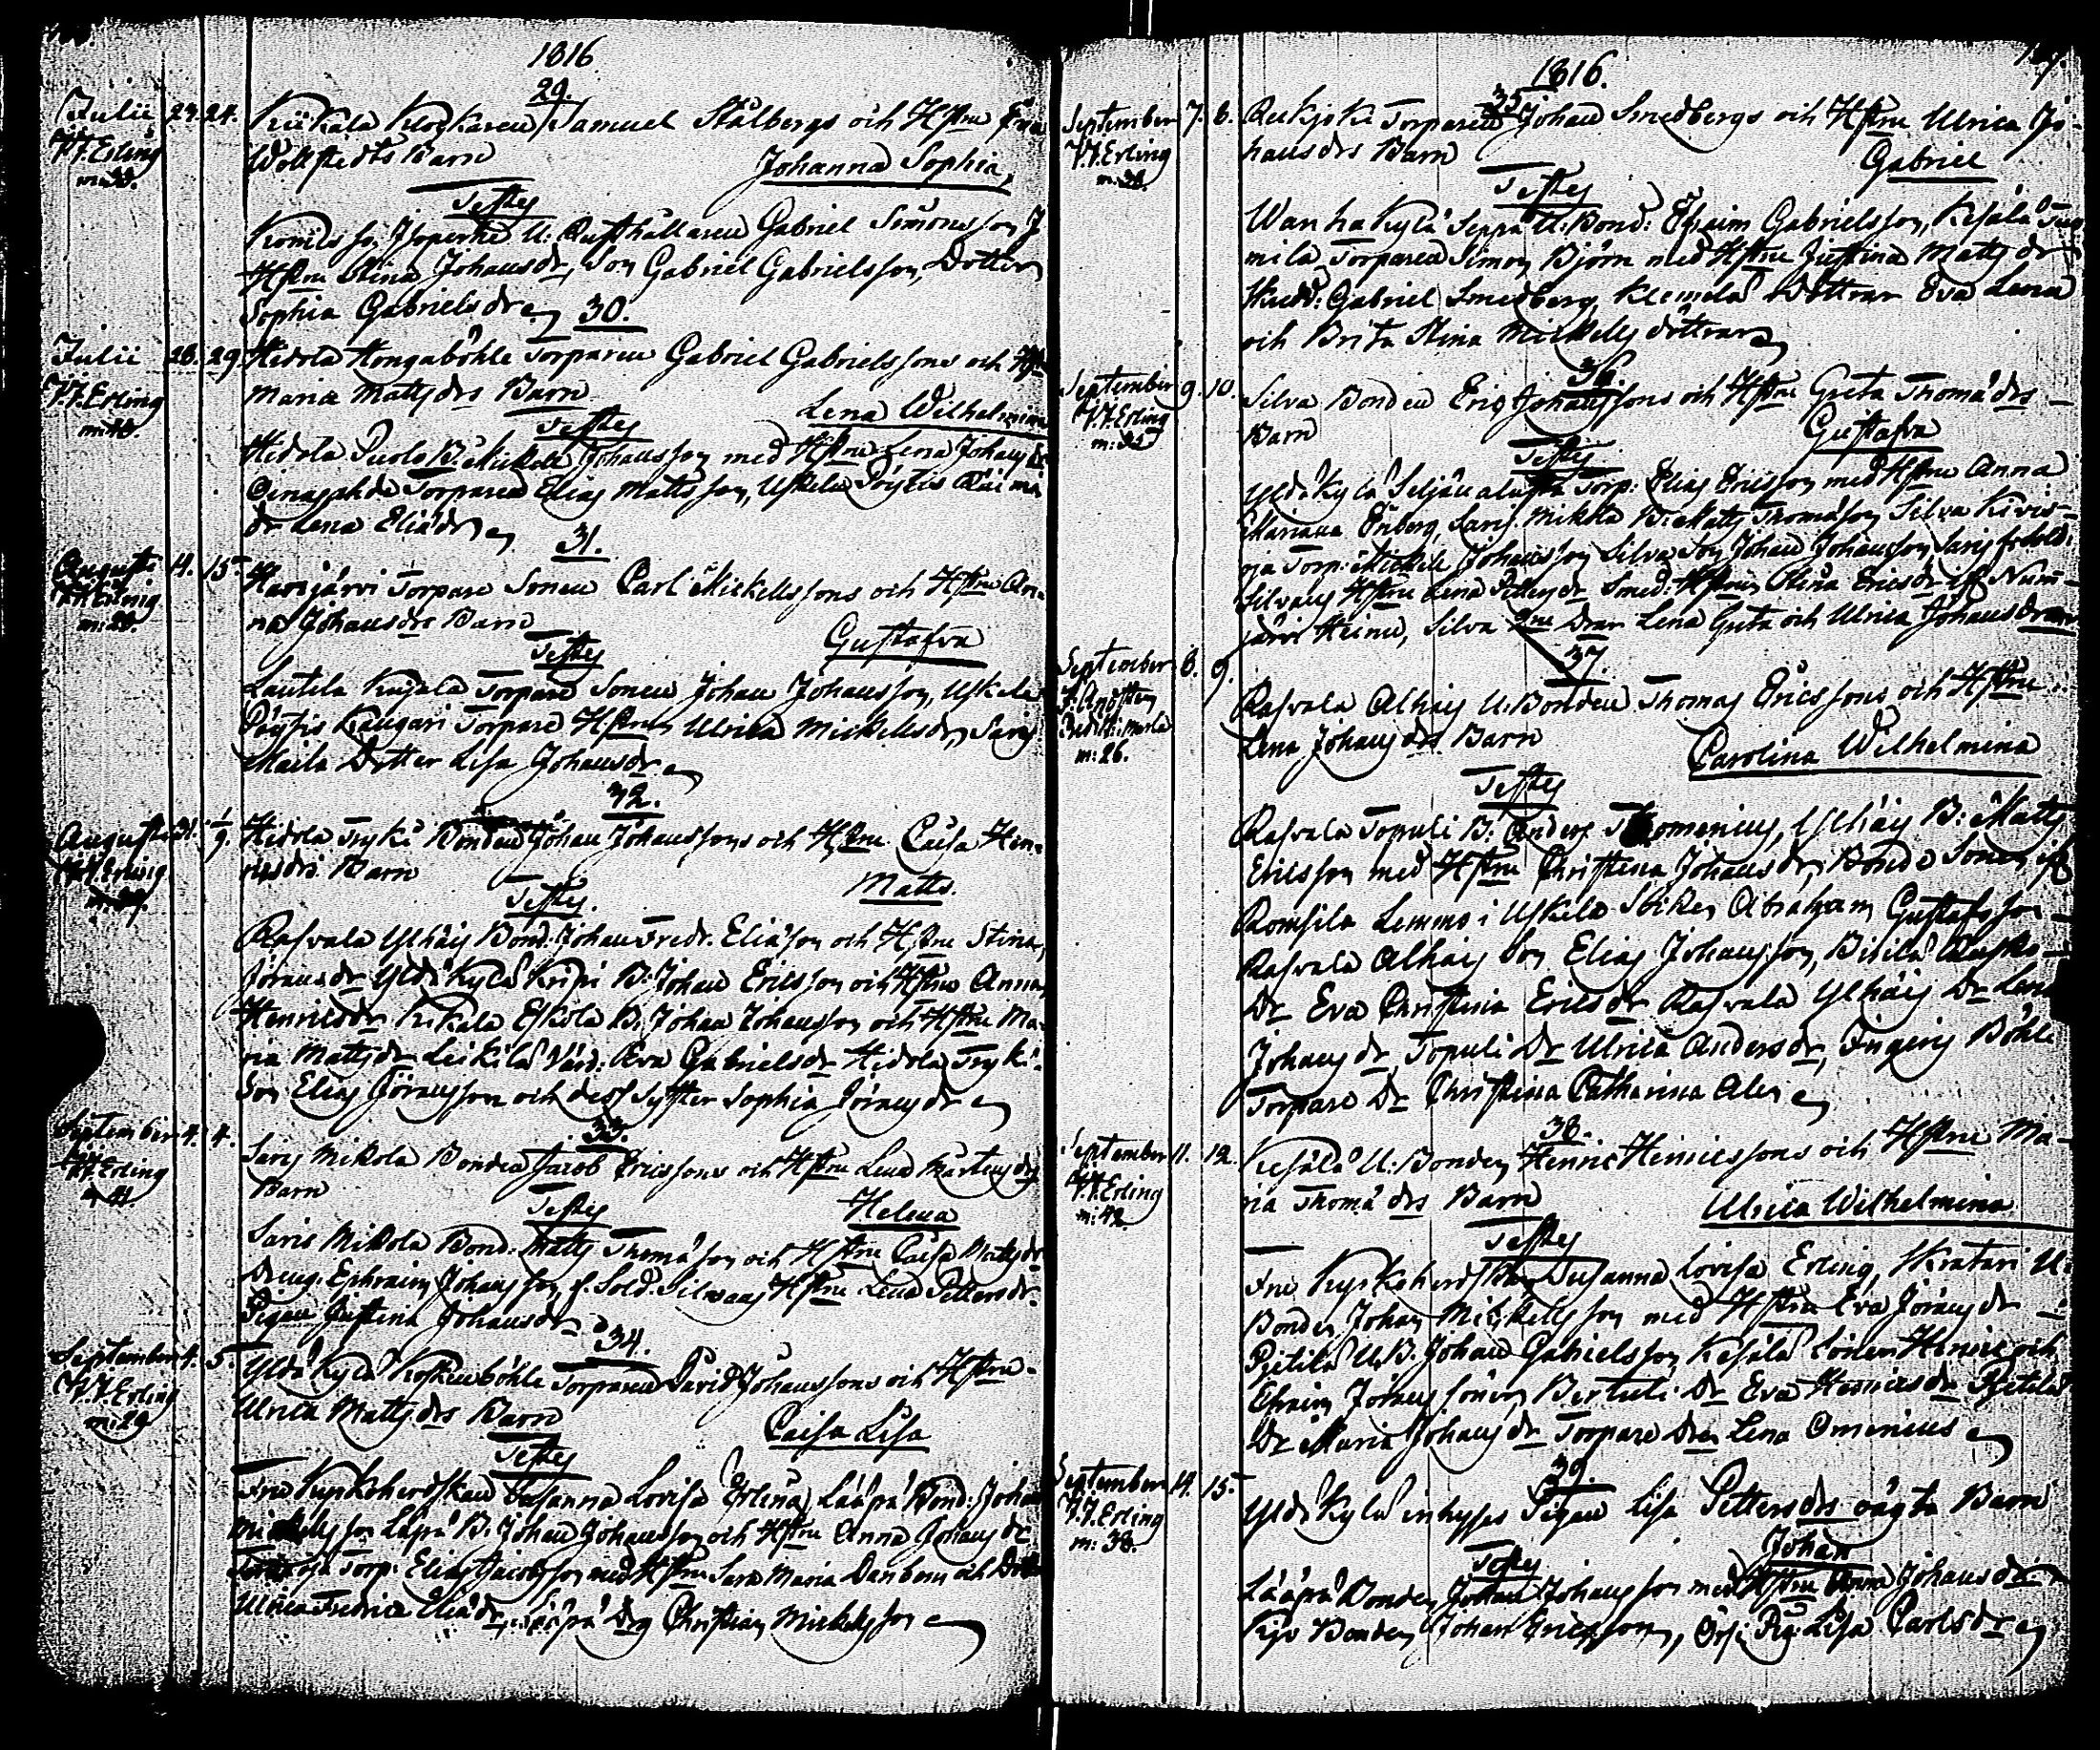 1816
29.
Julii 23. 24. Kiikala Klockaren Samuel Stålbergs och Hstru
J.J. Erling Wollstedts Barn Johanna Sophia
Testes
U: Rusthållaren Gabriel Simonsson
Hstru Stina Johansdr, Son Gabriel Gabrielsson, Dotter
Sophia Gabrielsdr
30.
Julii 28. 29 Hidola Kongaböhle Torparen Gabriel Gabrielssons och
J.J. Erling Maria Mattsdrs Barn Lena Wilhelmina
m: 40.
Testes
Hidola B: Mickell Johansson med Hstru Lena Johansdr
Torparen Elias Mattsson, Uskela
dr Lena Eliædr
31.
Augusti 14. 15. Harijärvi Torpare Sonen Carl Mickellssons och Hstru An-
J.J. Erling na Johansdrs Barn Gustafva
Testes
Lautela Kujala Torpare Sonen Johan Johansson, Uskela
Kangari Torpare Ulrica Mickellsdr, Saris
Maila Dotter Lisa Johansdr
32.
Augusti 31. 1/9. Hidola Tryki Bonden Johan Johanssons och Hstru Caisa Hen-
J.J. Erling ricsdrs Barn Matts.
Testes.
Rasvala Ylhäis Bond. Johan Fredr. Eliæson och Hstru Stina
Jöransdr Yldäkylä Kripi B: Johan Ericsson och Hstru Anna
Henricsdr Kikala Eskola B: Johan Johansson och Hstru Ma-
ria Mattsdr Leikilä Värd: Eva Gabrielsdr Hidola Tryki
Son Elias Jöransson och dess Syster Sophia Jöransdr
33.
September 4. 4. Saris Mikola Bonden Jacob Ericssons och Hstru Lena Mårtensdrs
J.J. Erling Barn Helena
Testes
Saris Mikola Bond: Matts Thomæson och Hstru Caisa Mattsdr
Dreng. Ephraim Johansson, f. Sold. Silvans Hstru Lena Pettersdr.
Pigan Justina Johansdr
34.
September 4. 5. Yldäkylä Koskenböhle Torparen David Johanssons och Hstru
J.J. Erling Ulrica Mattsdrs Barn Caisa Lisa
m: 29
Testes
Fru Kyrkoherdskan Susanna Lovisa Erling, Lääpä Bond: Johan
Mickellsson Lääpä B. Johan Johansson och Hstru Anna Johansdr
Torp: Elias Jacobsson med Hstru Sara Maria Danbom och
Ulrica Fredrica Eliædr, Lääpä Drg Christian Mickellsson
1816.
35
September 7. 8. Rekijoki Torparen Johan Smedbergs och Hstru Ulrica Jo-
J.J. Erling hansdrs Barn Gabriel
Testes
Wanhakylä Seppä U: Bond: Efraim Gabrielsson, Kesälä
mila Torparen Simon Björn med Hstru Justina Mattsdr
Gabriel Smedberg, Klemelä Döttrar Eva Lena
och Brita Stina Mickells döttrar
36.
September 9. 10. Silva Bonden Eric Johanssons och Hstru Greta Thomædrs
J.J. Erling Barn Gustafva
m: 35
Testes
Yldäkylä Torp: Elias Ericsson med Hstru Anna
Mariana Enberg, Saris Mikola B: Matts Thomæson Silva Kivis-
oja Torp: Mickell Johansson Silva Son Johan Johansson Saris
Silvans Hstru Lena Pettersdr Stina Ericsdr if Num-
järvi Heinu, Silva Lena Greta och Ulrica Johansdrar
37.
September 8. 9. Rasvala Alhais U: Bonden Thomas Ericssons och Hstru
Lena Johansdrs Barn Carolina Wilhelmina
m: 26.
Testes
Rasvala Topuli B. Anders Thomenius, Ylhäis B: Matts
Ericsson med Hstru Christina Johansdr, Bonde Sonen if
Romsila Lemmo i Uskela Abraham Gustafsson
Rasvala Alhais Son Elias Johansson,
Dr Eva Christina Ericsdr Rasvala Ylhäis Dr Lena
Johansdr, Topuli Dr Ulrica Andersdr, Ingeris Böhle
Torpare Dr Christina Catharina Alen
38.
September 11. 12. Kesälä U: Bonden Henric Henricssons och Hstru Ma-
J.J. Erling ria Thomædrs Barn Ulrica Wilhelmina
m: 42
Testes
Fru Kyrkoherdskan Susanna Lovisa Erling, Skratari U.
Bonden Johan Mickellsson med Hstru Eva Jöransdr
Pjetilä U.B. Johan Gabrielsson Kesälä Sönen Henric och
Efraim Jöransöner, Bertuli Dr Eva Henricsdr Pjetilä
Dr Maria Johansdr Torpare Dren Lena Omenius
39.
September 14. 15. Yldäkylä inhyses Pigan Lisa Pettersdrs oägta Barn
J.J. Erling Johan
m: 38.
Testes
Lääpä Bonden Johan Johansson med Hstru Anna Johansdr
Bonden Johan Ericsson, Pig: Lisa Carlsdr